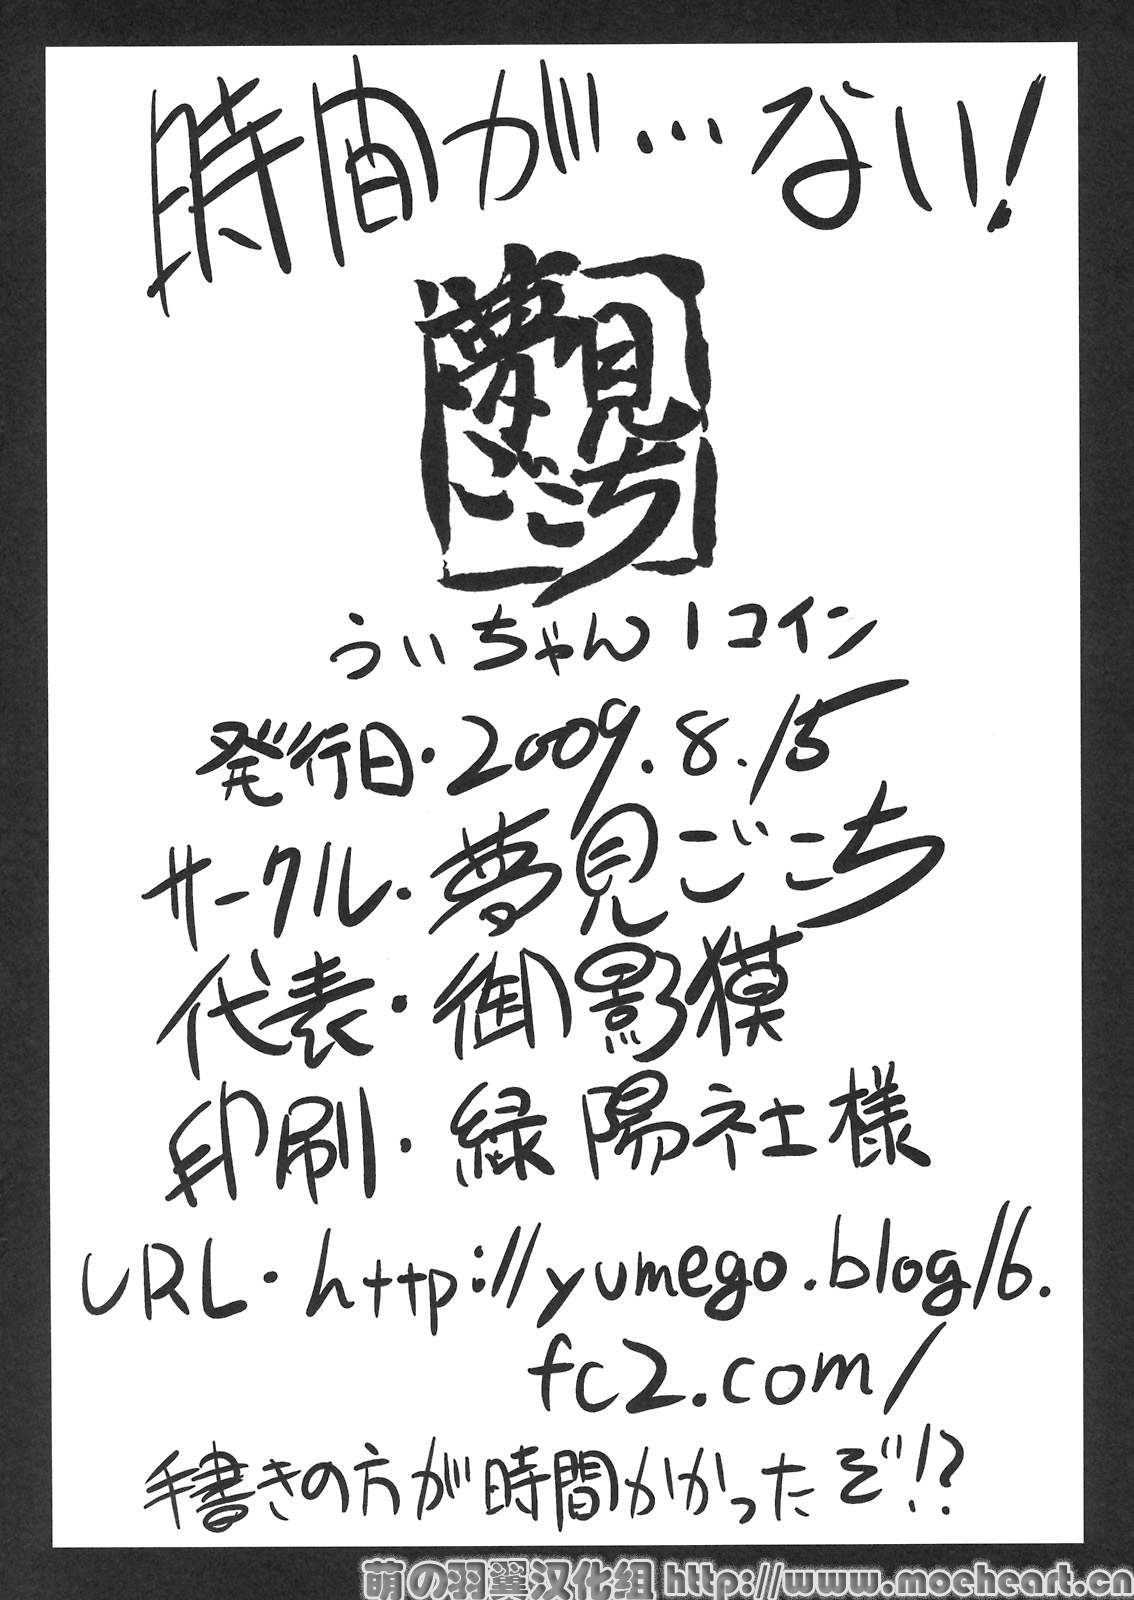 時間が…ない!
夢見
ごこち
ういちゃん1コイン
発行日・2009.8.15
サークル・夢見ごこち
代表・御影獏
印刷・緑陽社様
URL・http://yumego.blog16.
fc2.com/
手書きの方が時間かかったぞ!?
萌の羽翼汉化组 http://www.moeheart.cn